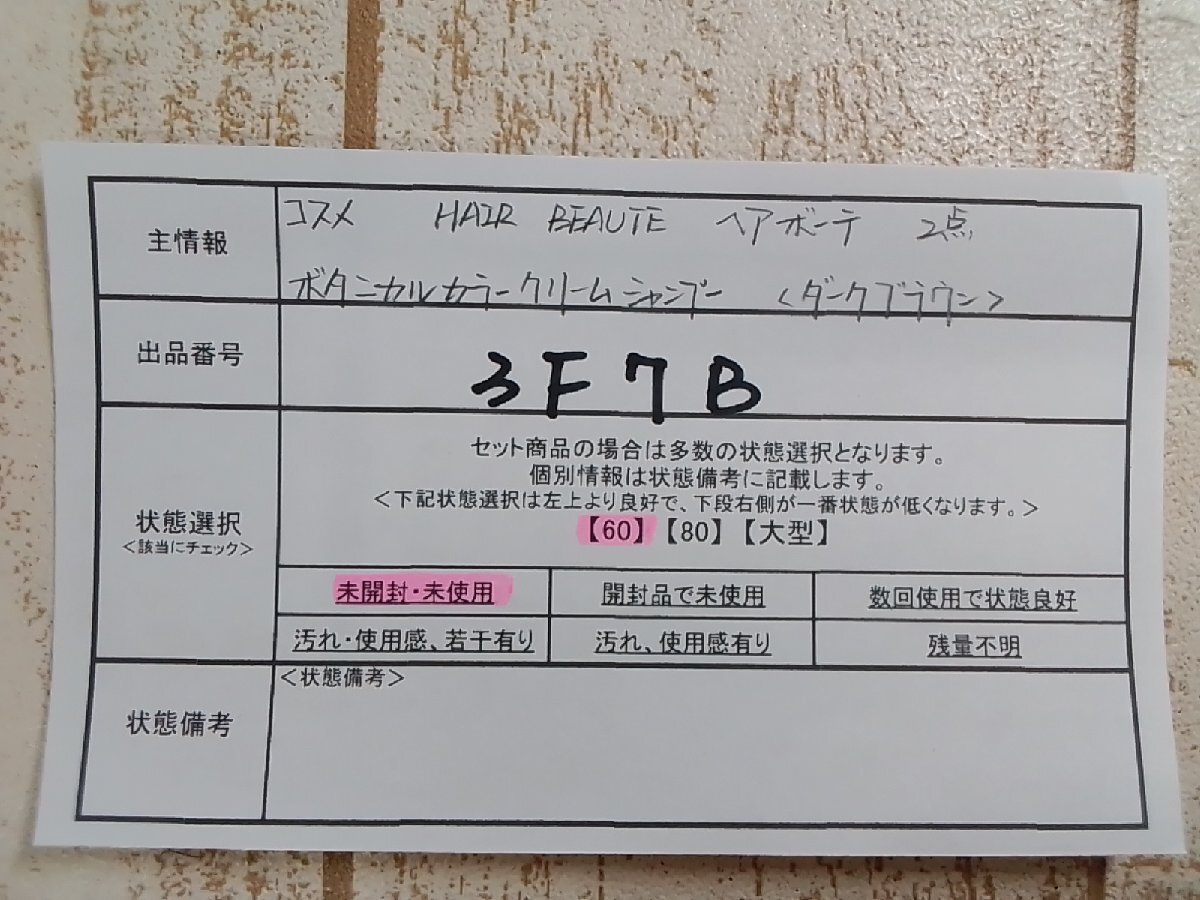 主情報
コスメ HAIR BEAUTE ヘアボーテ 2点
ボタニカルカラークリームシャンプー <ダークブラウン>
出品番号
3F7B
状態選択
<該当にチェック>
セット商品の場合は多数の状態選択となります。
個別情報は状態備考に記載します。
<下記状態選択は左上より良好で、下段右側が一番状態が低くなります。>
【60】【80】【大型】
未開封・未使用 開封品で未使用 数回使用で状態良好
汚れ・使用感、若干有り 汚れ、使用感有り 残量不明
状態備考
<状態備考>